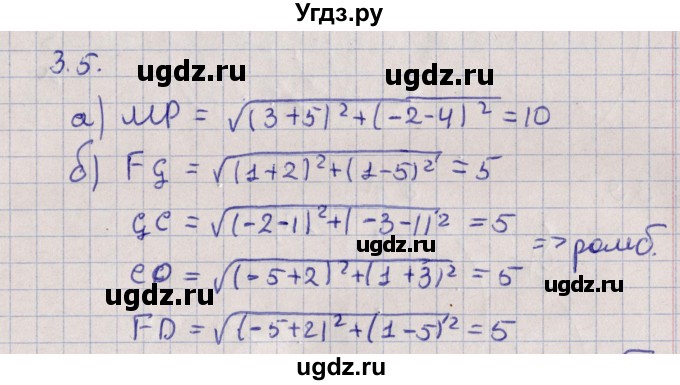 Угдз.ру
3.5.
ugdz.ru ugdz.ru
а) MP = √(3+5)²+(-2-4)² = 10
б) FG = √(1+2)²+(1-5)² = 5
ugdz.ru
GC = √(-2-1)²+(-3-1)² = 5
ugdz.ru
=> ромб.
CD = √(-5+2)²+(1+3)² = 5
ugdz.ru ugdz.ru
FD = √(-5+2)²+(1-5)² = 5
ugdz.ru ugdz.ru
ugdz.ru